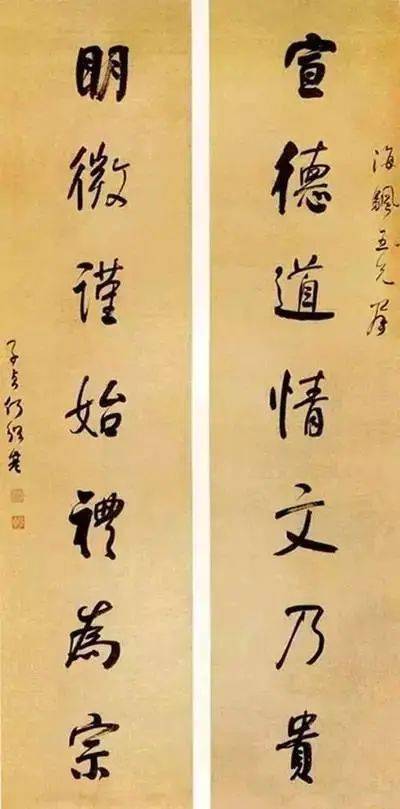 宣德道情文乃貴
海颿五兄屬
明微謹始禮為宗
子貞何紹基